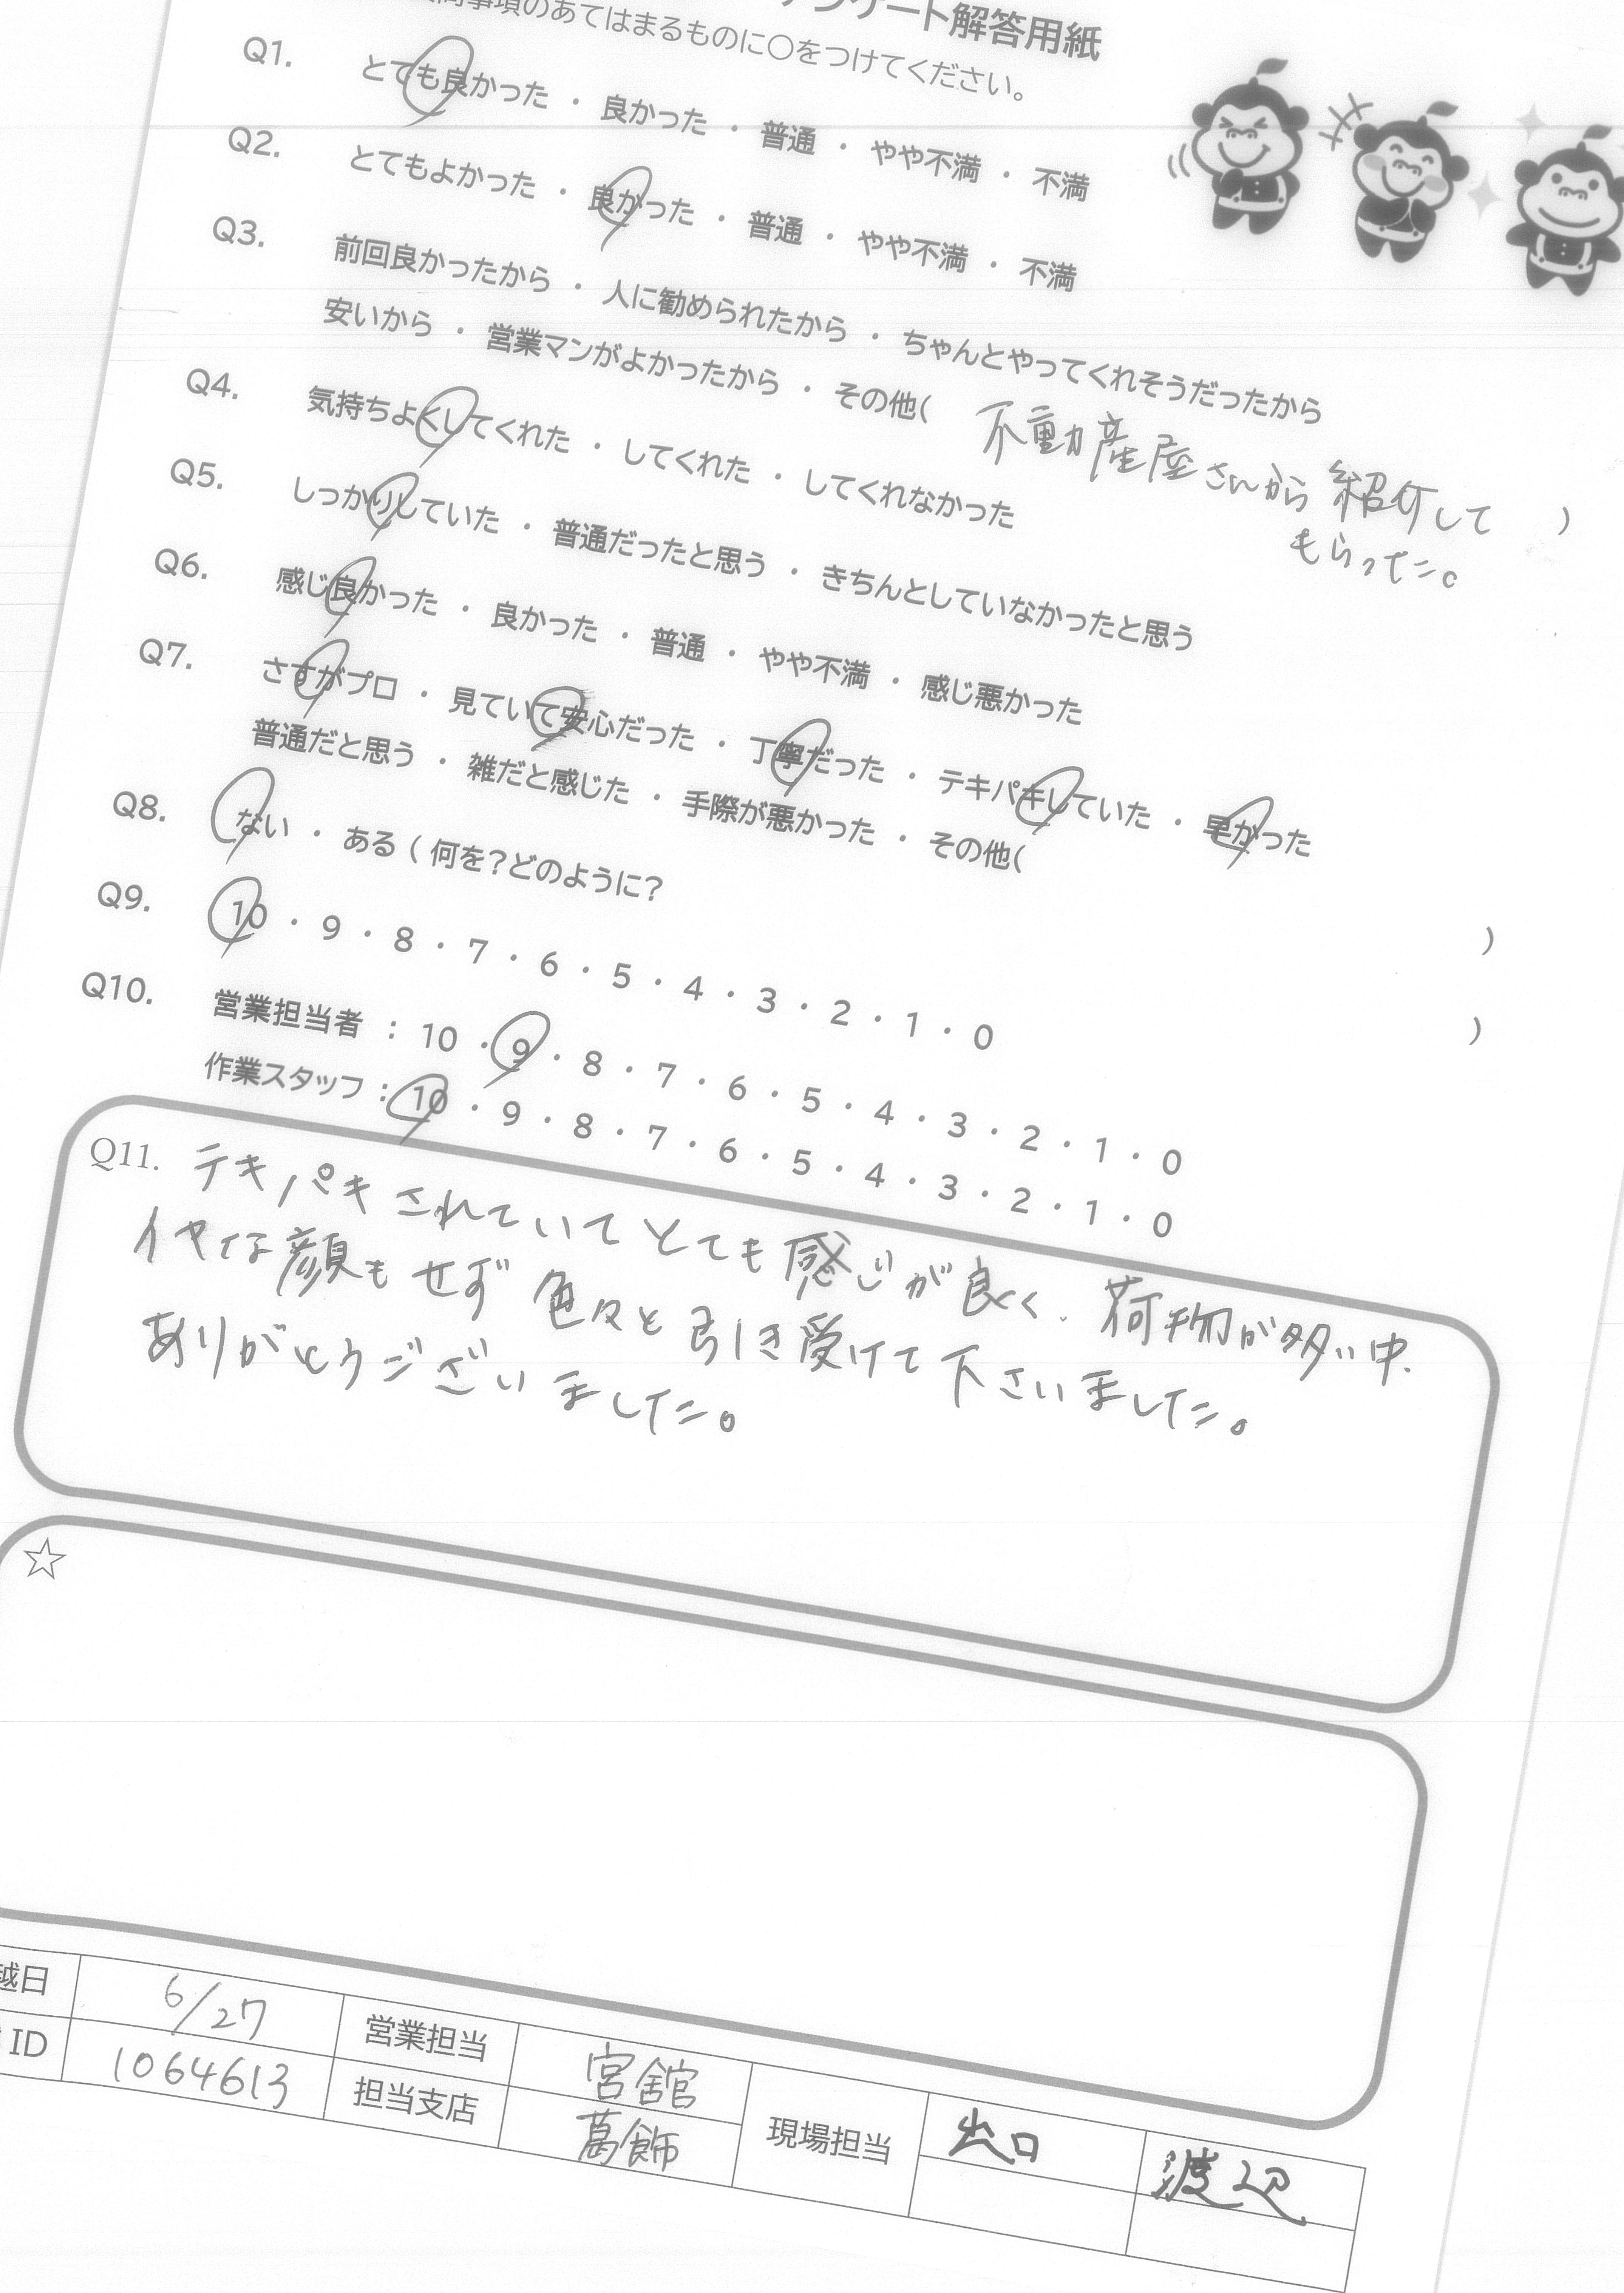 アンケート解答用紙
事項のあてはまるものに〇をつけてください。
Q1. とても良かった ・ 良かった ・ 普通 ・ やや不満 ・ 不満
Q2. とてもよかった ・ 良かった ・ 普通 ・ やや不満 ・ 不満
Q3. 前回良かったから ・ 人に勧められたから ・ ちゃんとやってくれそうだったから
安いから ・ 営業マンがよかったから ・ その他( 不動産屋さんから紹介して )
もらった。
Q4. 気持ちよくしてくれた ・ してくれた ・ してくれなかった
Q5. しっかりしていた ・ 普通だったと思う ・ きちんとしていなかったと思う
Q6. 感じ良かった ・ 良かった ・ 普通 ・ やや不満 ・ 感じ悪かった
Q7. さすがプロ ・ 見ていて安心だった ・ 丁寧だった ・ テキパキしていた ・ 早かった
普通だと思う ・ 雑だと感じた ・ 手際が悪かった ・ その他( )
Q8. ない ・ ある ( 何を?どのように? )
Q9. 10 ・ 9 ・ 8 ・ 7 ・ 6 ・ 5 ・ 4 ・ 3 ・ 2 ・ 1 ・ 0
Q10. 営業担当者 : 10 ・ 9 ・ 8 ・ 7 ・ 6 ・ 5 ・ 4 ・ 3 ・ 2 ・ 1 ・ 0
作業スタッフ : 10 ・ 9 ・ 8 ・ 7 ・ 6 ・ 5 ・ 4 ・ 3 ・ 2 ・ 1 ・ 0
Q11. テキパキされていてとても感じが良く、荷物が多い中、
イヤな顔もせず色々と引き受けて下さいました。
ありがとうございました。
☆
越日 6/27 営業担当 宮舘 現場担当 出口 渡辺
ID 1064613 担当支店 葛飾